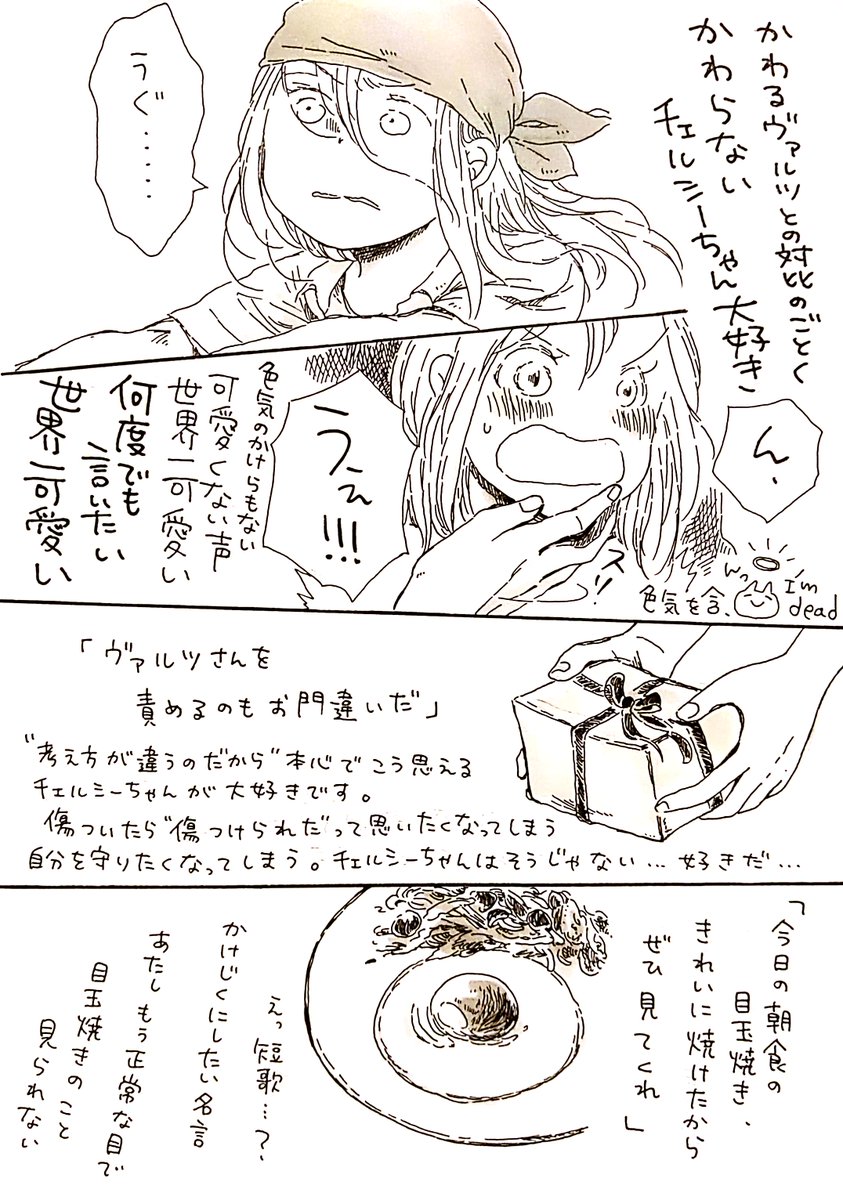 かわるヴァルツとの対比のごとく
かわらない
チェルシーちゃん大好き
うぐ……
ん、
うえ!!!
色気のかけらもない
可愛くない声
世界一可愛い
何度でも
言いたい
世界一可愛い
スッ!
んっ
I'm
dead
色気を含、
「ヴァルツさんを
責めるのもお門違いだ」
"考え方が違うのだから"本心でこう思える
チェルシーちゃんが大好きです。
傷ついたら"傷つけられた"って思いたくなってしまう
自分を守りたくなってしまう。チェルシーちゃんはそうじゃない…好きだ…
「今日の朝食の
目玉焼き、
きれいに焼けたから
ぜひ見てくれ」
えっ短歌…?
かけじくにしたい名言
あたしもう正常な目で
目玉焼きのこと
見られない